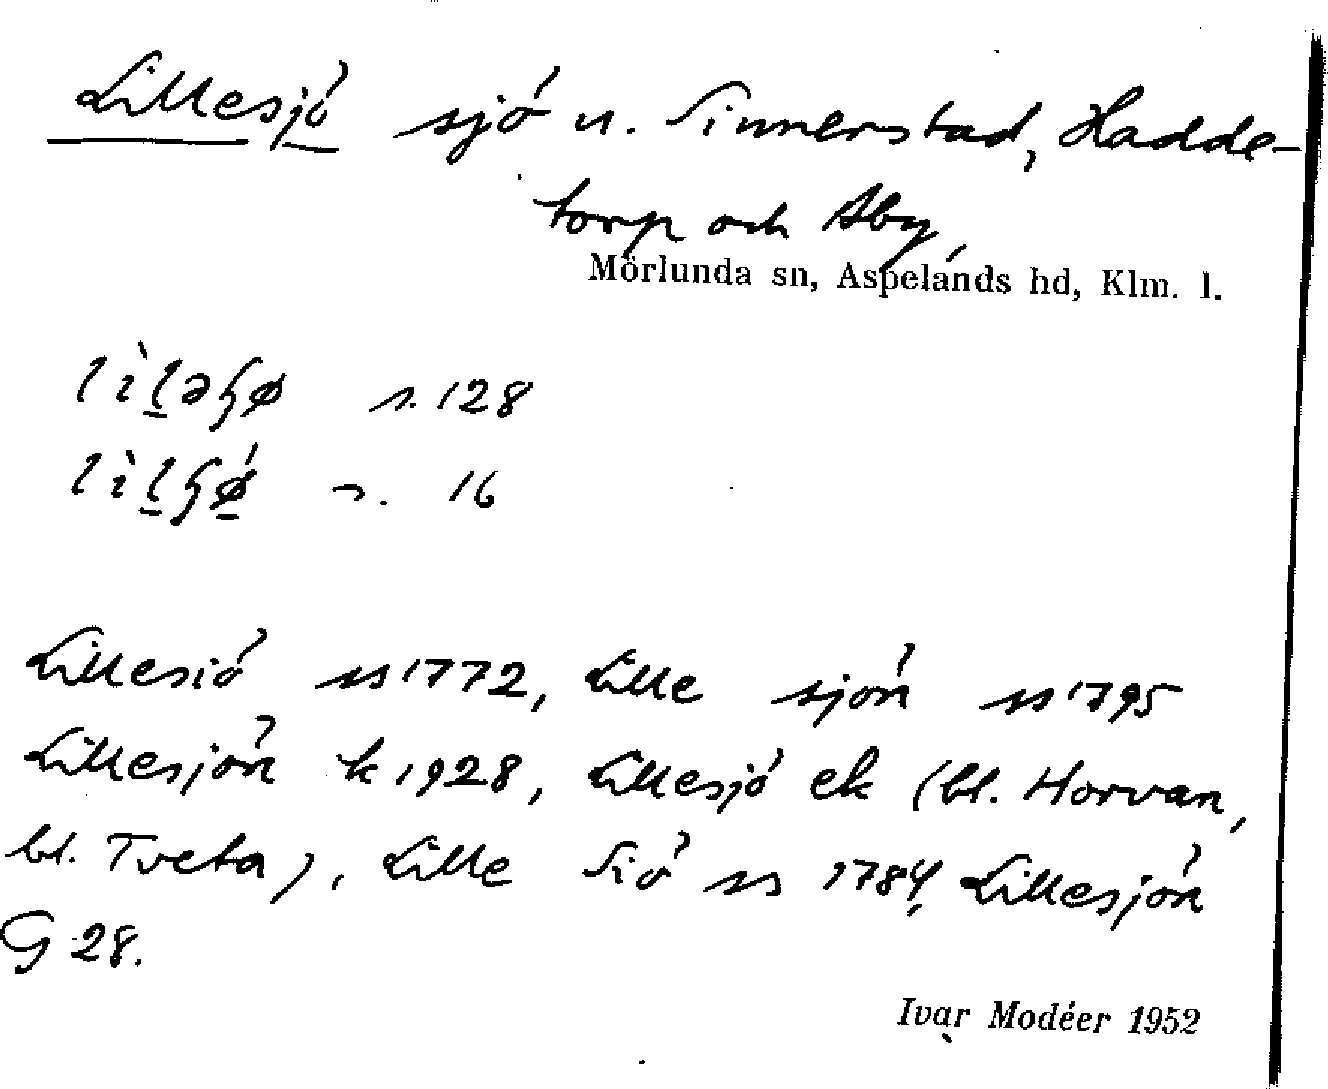 Lillesjö sjö u. Sinnerstad, Hadde-
torp och Åby,
Mörlunda sn, Aspelands hd, Klm. l.
s. 128
s. 16
Lillesiö ss 1772, Lille sjön ss 1795
Lillesjön k 1928, Lillesjö ek (bl. Horvan,
bl. Tveta), Lille Siö ss 1784, Lillesjön
G 28.
Ivar Modéer 1952